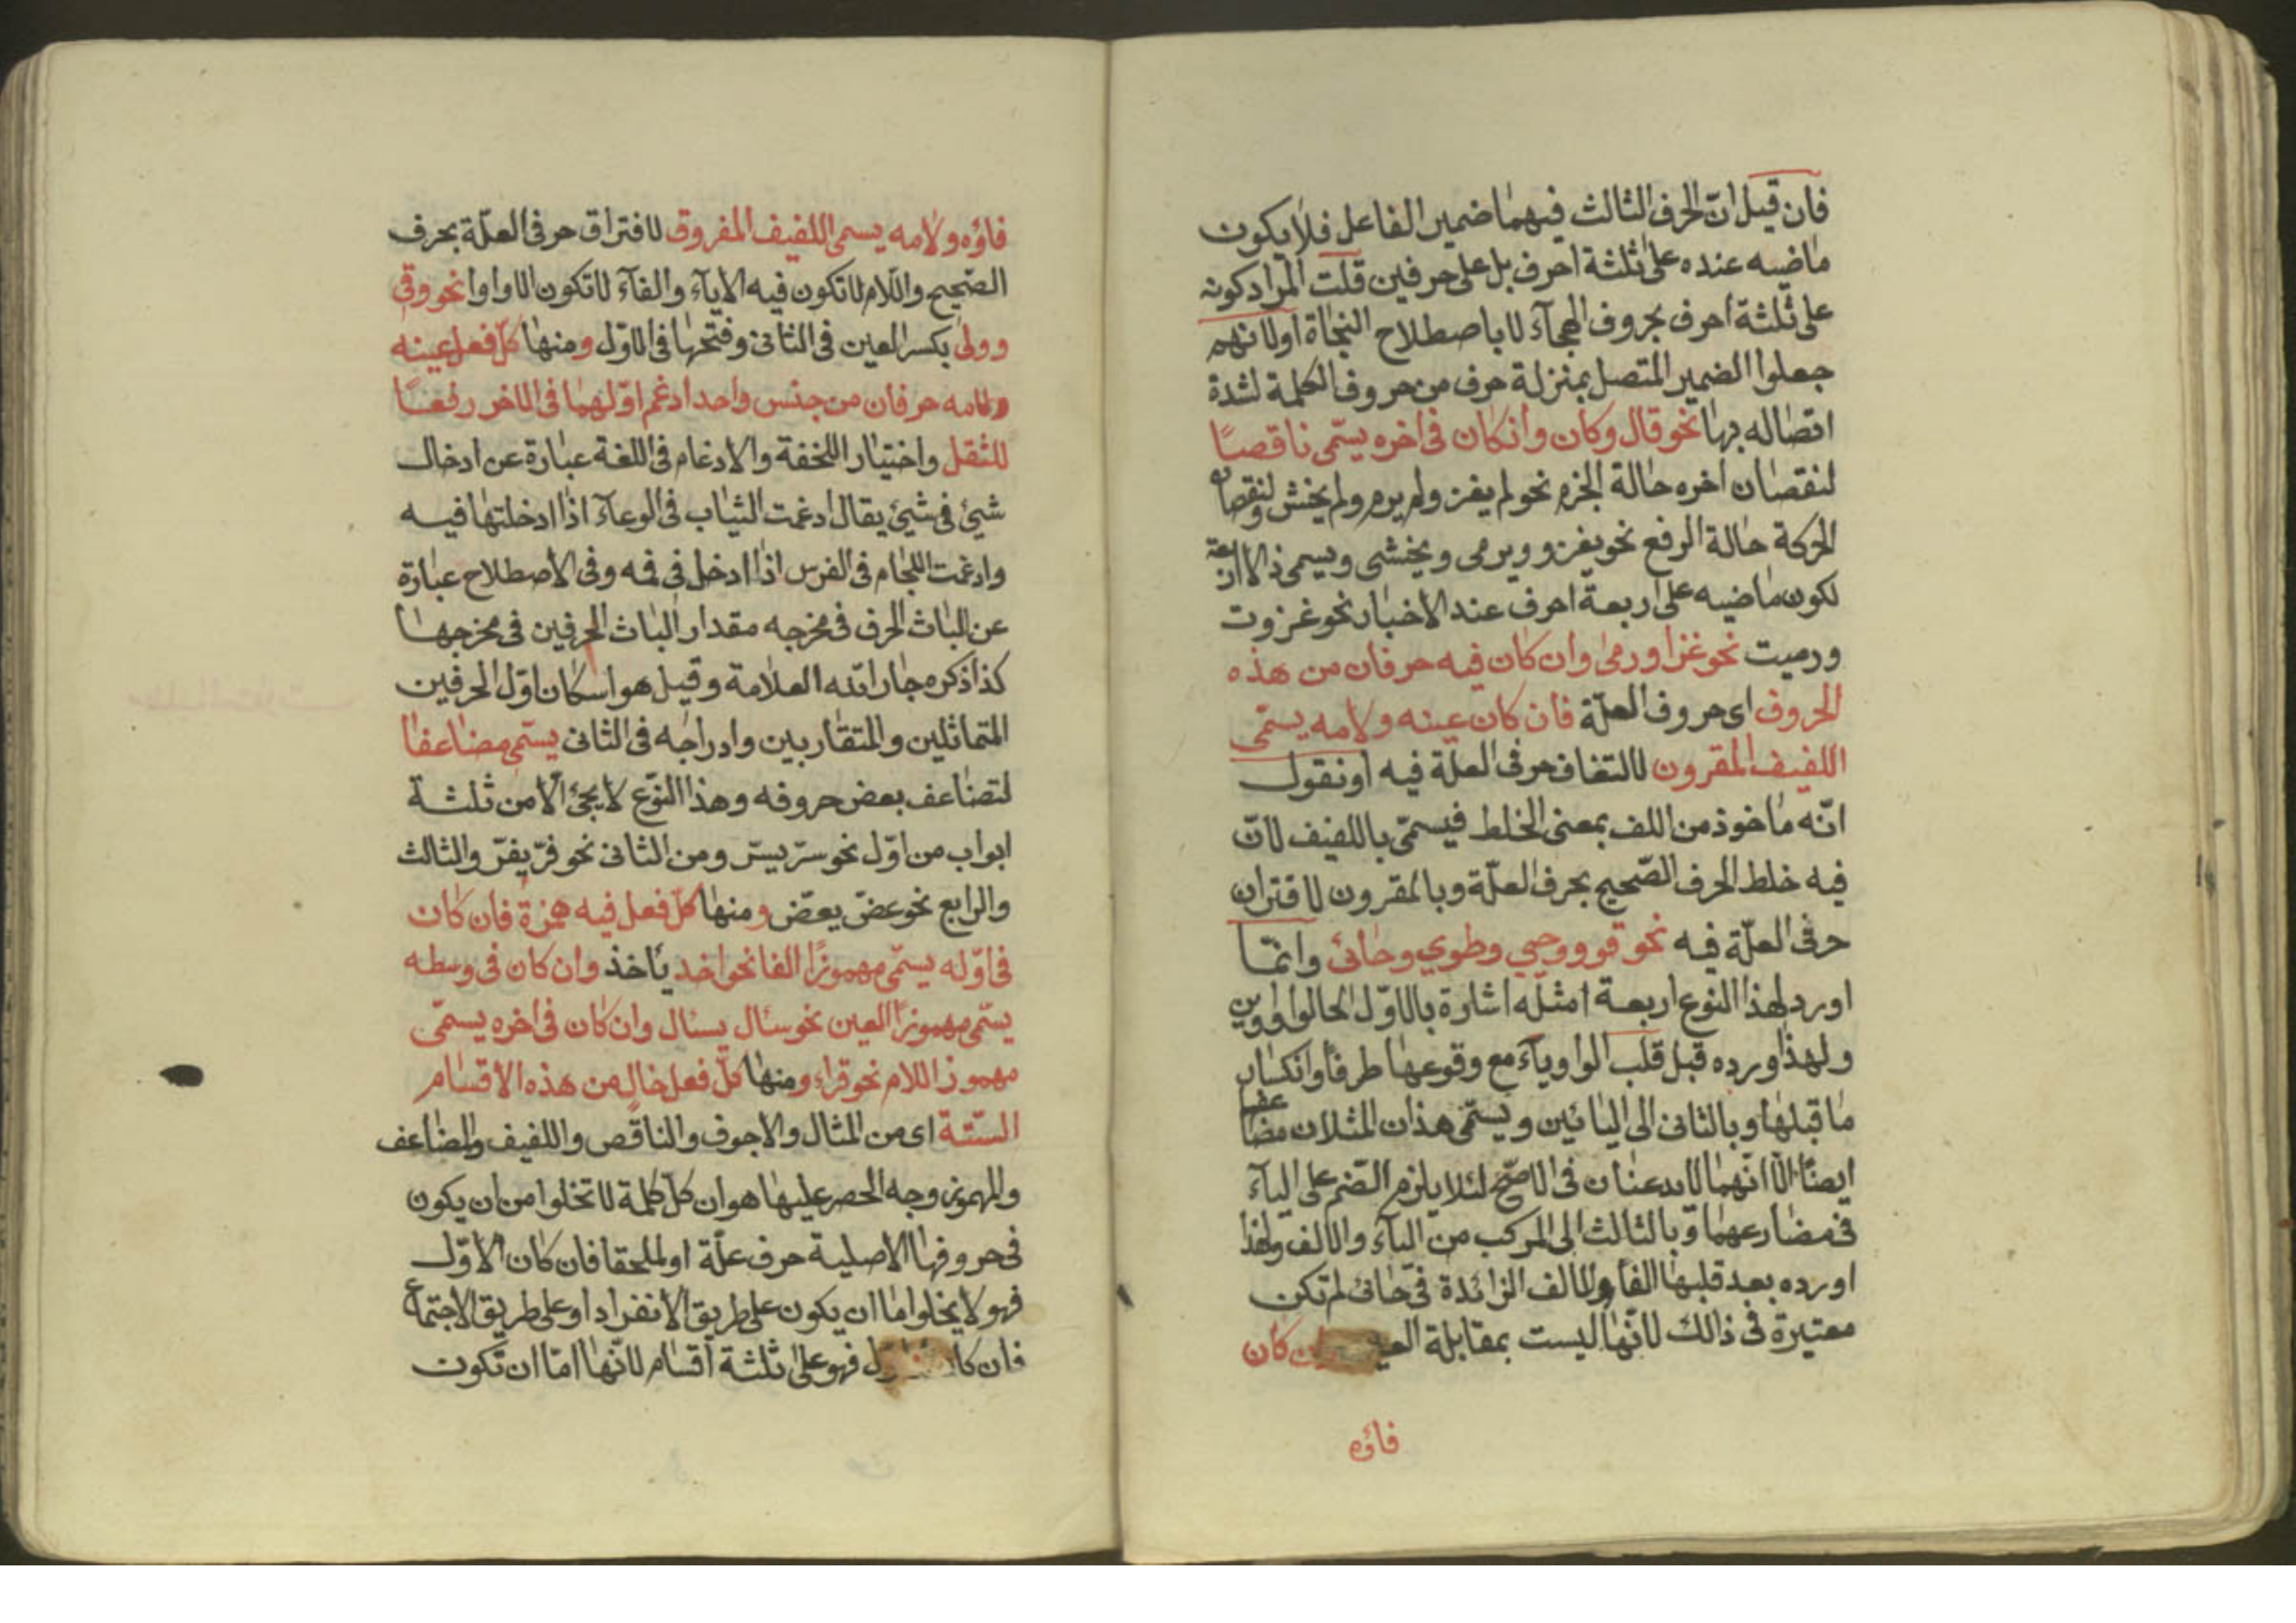 فان قيل ان الحرف الثالث فيهما ضمير الفاعل فلا يكون
ماضيه عنده على ثلثة احرف بل على حرفين قلت المراد كونه
على ثلثة احرف بحروف الهجآء لا باصطلاح النحاة اولانهم
جعلوا الضمير المتصل بمنزلة حرف من حروف الكلمة لشدة
اتصاله بها نحو قال وكان وانكان فى اخره يسمّى ناقصاً
لنقصان اخره حالة الجزم نحو لم يغز ولم يرم ولم يخش ولنقصان
الحركة حالة الرفع نحو يغزو ويرمى ويخشى ويسمى ذالاربعة
لكون ماضيه على اربعة احرف عند الاخبار نحو غزوت
ورميت نحو غزا ورمى وان كان فيه حرفان من هذه
الحروف اى حروف العلّة فان كان عينه ولامه يسمّى
اللفيف المقرون لالتفاف حرفى العلّة فيه او نقول
انّه ماخوذ من اللف بمعنى الخلط فيسمّى باللفيف لانّ
فيه خلط الحرف الصّحيح بحرف العلّة وبالمقرون لاقتران
حرفى العلّة فيه نحو قوو وحيي وطوي وحائ وانّما
اورد لهذا النوع اربعة امثله اشارة بالاوّل الى الواووين
ولهذا اورده قبل قلب الواو ياء مع وقوعها طرفا وانكسار
ما قبلها وبالثانى الى اليائين ويسمّى هذان المثلان مضاعفا
ايضًا الّا انّهما لا يدغمان فى الاصّح لئلا يلزم الضّم على اليآء
فى مضارعهما وبالثالث الى المركب من اليآء والالف ولهذا
اورده بعد قلبها الفا والالف الزائدة فى حائ لم تكن
معتبرة فى ذالك لانّها ليست بمقابلة العين وان كان
فاؤه
فاؤه ولامه يسمى اللفيف المفروق لافتراق حرفى العلّة بحرف
الصّحيح واللام لا تكون فيه الا يآء والفآء لا تكون الا واوا نحو وقى
وولى بكسر العين فى الثانى وفتحها فى الاوّل ومنها كلّ فعل عينه
ولامه حرفان من جنس واحد ادغم اوّلهما فى الاخر رفعاً
للثقل واختيار اللخفة والادغام فى اللغة عبارة عن ادخال
شيئ فى شيئ يقال ادغمت الثياب فى الوعآء اذا ادخلتها فيه
وادغمت اللجام فى الفرس اذا ادخل فى فمه وفى الاصطلاح عبارة
عن الباث الحرف فى مخرجه مقدار الباث الحرفين فى مخرجهما
كذا ذكره جار الله العلامة وقيل هو اسكان اوّل الحرفين
المتماثلين والمتقاربين وادراجه فى الثانى يسمّى مضاعفا
لتضاعف بعض حروفه وهذا النّوع لا يجئ الّا من ثلثة
ابواب من اوّل نحو سرّ يسرّ ومن الثانى نحو فرّ يفرّ والثالث
والرابع نحو عضّ يعضّ ومنها كلّ فعل فيه همزة فان كان
فى اوّله يسمّى مهموزًا الفا نحو اخذ ياخذ وان كان فى وسطه
يسمّى مهموزًا العين نحو سئال يسئال وان كان فى اخره يسمّى
مهموز اللام نحو قراء ومنها كلّ فعل خال من هذه الاقسام
الستّة اى من المثال والاجوف والناقص واللفيف والمضاعف
والمهموز وجه الحصر عليها هو ان كلّ كلمة لا تخلوا من ان يكون
فى حروفها الاصلية حرف علّة او لملحقا فان كان الاوّل
فهو لا يخلوا اما ان يكون على طريق الانفراد او على طريق الاجتماع
فان كان فهو على ثلثة اقسام لانّها امّا ان تكون